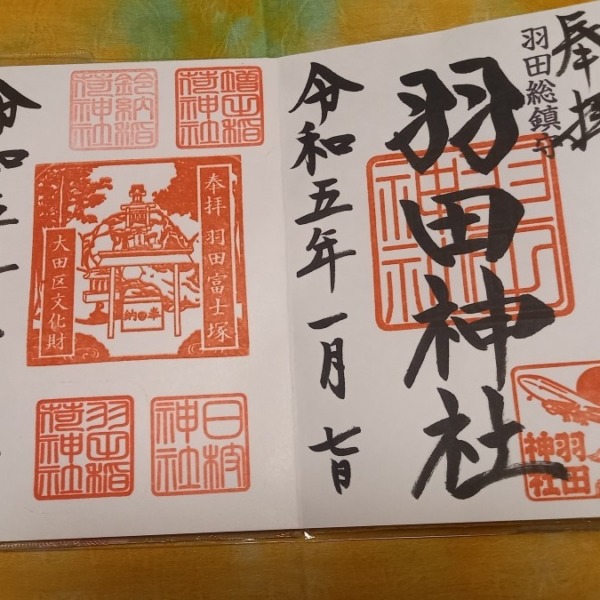 奉拝
羽田総鎮守
羽田神社
羽田神社
羽田
神社
令和五年一月七日
鈴納稲荷神社
奉拝 羽田富士塚
大田区文化財
奉納
日枝神社
羽田稲荷神社
令和五